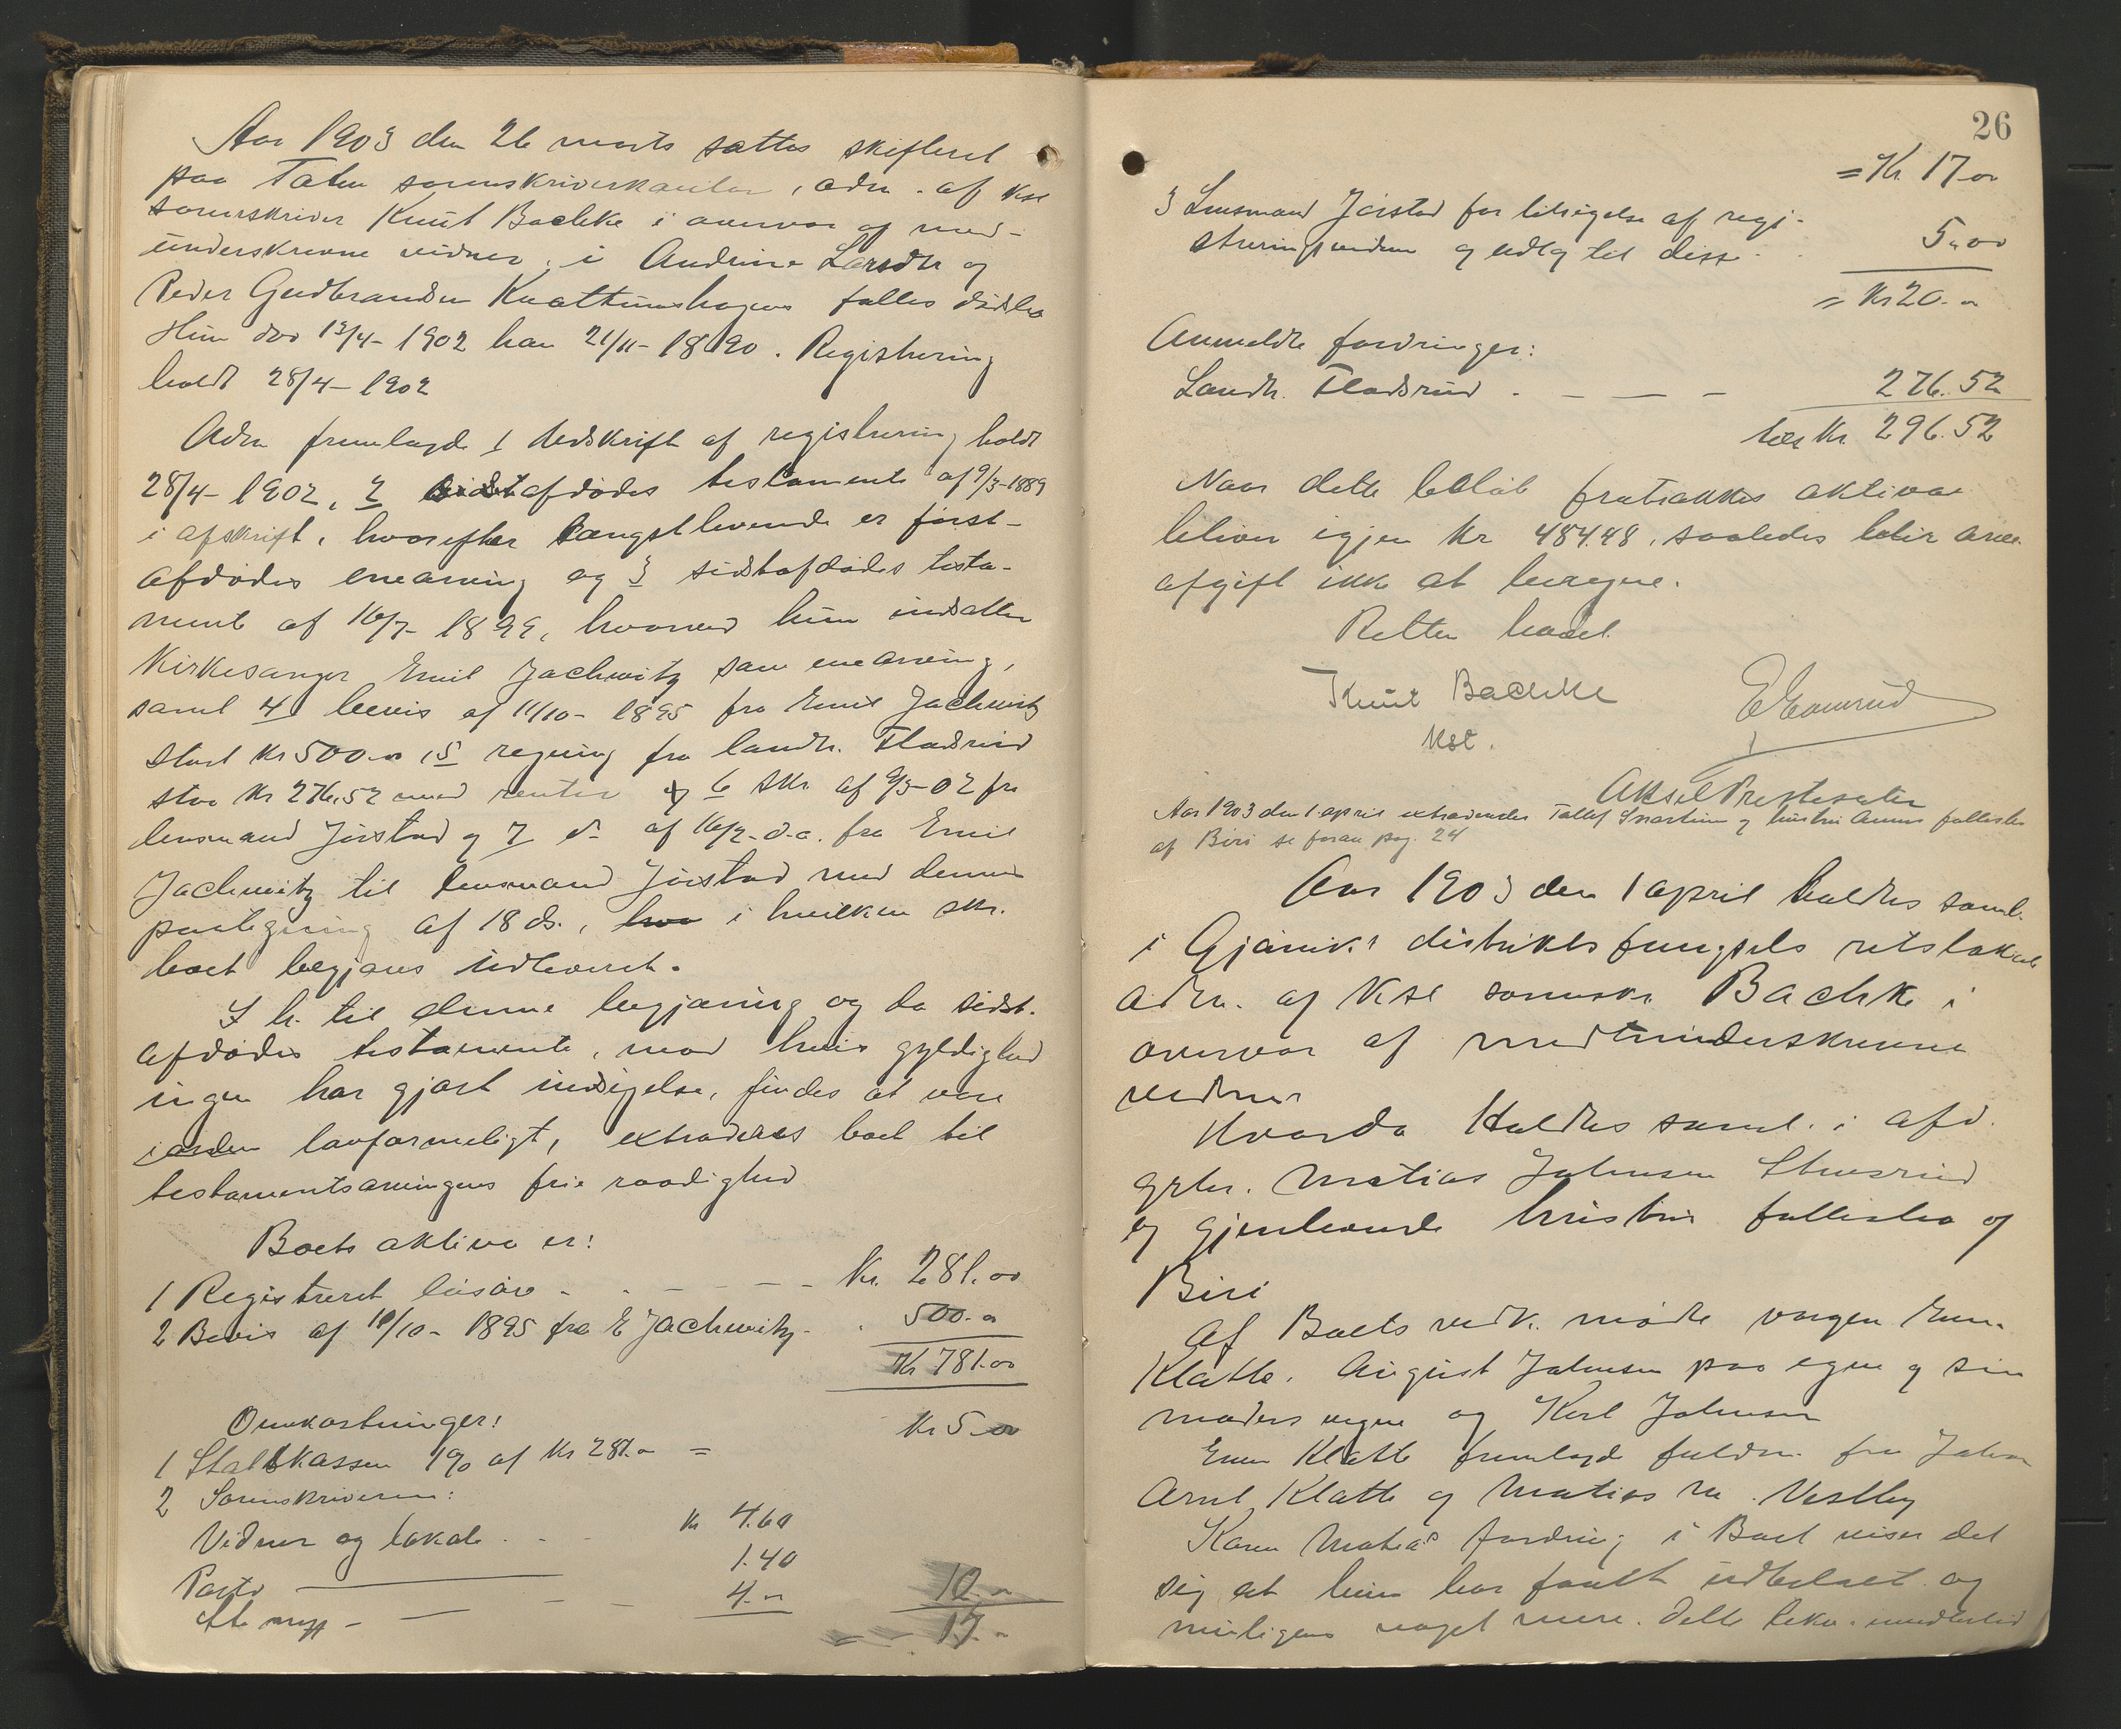 Aar 1903 den 26 marts sattes skifteret
paa Toten sorenskriverkontor, adm. af kst
sorenskriver Knut Bachke i overvær af med-
underskrevne vidner, i Andrine Larsdtr og
Peder Gudbrandsen Knattumshagens fælles dødsbo
Hun død 13/4-1902 han 21/11-1890. Registrering
holdt 28/4-1902
Adm fremlagde 1 Udskrift af registrering holdt
28/4-1902, 2 sidstafdødes testamente af 9/3-1889
i afskrift, hvorefter længstlevende er først-
afdødes enearving og 3 sidstafdødes testa-
mente af 16/7-1899, hvorved hun indsætter
Kirkesanger Emil Jachwitz som enearving,
samt 4 bevis af 11/10-1895 fra Emil Jachwitz
stort kr 500.00, 5 regning fra landh. Fladsrud
stor kr 276.52 med renter og 6 skr. af 9/5-02 fra
lensmand Jørstad og 7 do af 16/2-d.a. fra Emil
Jachwitz til lensmand Jørstad med dennes
paategning af 18 ds., hvo i hvilken skr.
boet begjæres udleveret.
I h. til denne begjæring og da sidst-
afdødes testamente, mod hvis gyldighed
ingen har gjort indsigelse, findes at være
i orden lovformeligt, extraderes boet til
testamentsarvingens frie raadighed
Boets aktiva er:
1 Registreret løsøre - - - - Kr. 281.00
2 Bevis af 10/10-1895 fra E Jachwitz - . 500.00
Kr 781.00
Omkostninger:
1 Statskassen 1% af Kr 281.00 = Kr 5.00
2 Sorenskriveren:
Vidner og lokale . . - kr 4.60
Porto 1.40
- - - 4.00 10.00
= - 17.-
26
= Kr 17.00
3 Lensmand Jørstad for tilsigelse af regi-
streringsvidner og udlæg til disse . . 5.00
= Kr 20.00
Anmeldte fordringer:
Landh. Fladsrud . - - - 276.52
tils Kr. 296.52
Naar dette beløb fratrækkes aktiva
bliver igjen Kr 484.48, saaledes blir arve-
afgift ikke at beregne.
Retten hævet.
Knut Bachke
kst.
Aksel Prestesæter
Aar 1903 den 1 april extraderedes Tollef Svartum og hustru Annes fællesbo
af Biri se foran pag. 24
Aar 1903 den 1 april holdtes saml.
i Gjøviks distriktsfængsels retslokale
adm. af kst sorenskr Bachke i
overvær af medunderskrevne
vidner
Hvorda Holdtes saml. i afd.
grbr. Matias Johnsen Stuesrud
og gjenlevende hustrus fællesbo af
Biri
Af Boets vedk. mødte vergen Even
Klatte. August Johnsen paa egne og sin
moders vegne og Karl Johnsen
Even Klatte fremlagde fuldm. fra Johan
Arnt Klatte og Matias M. Vestby
Karen Mateas fordring i Boet viser det
sig at hun har faaet udbetalt og
muligens noget mere. Dette bekr. imidlertid